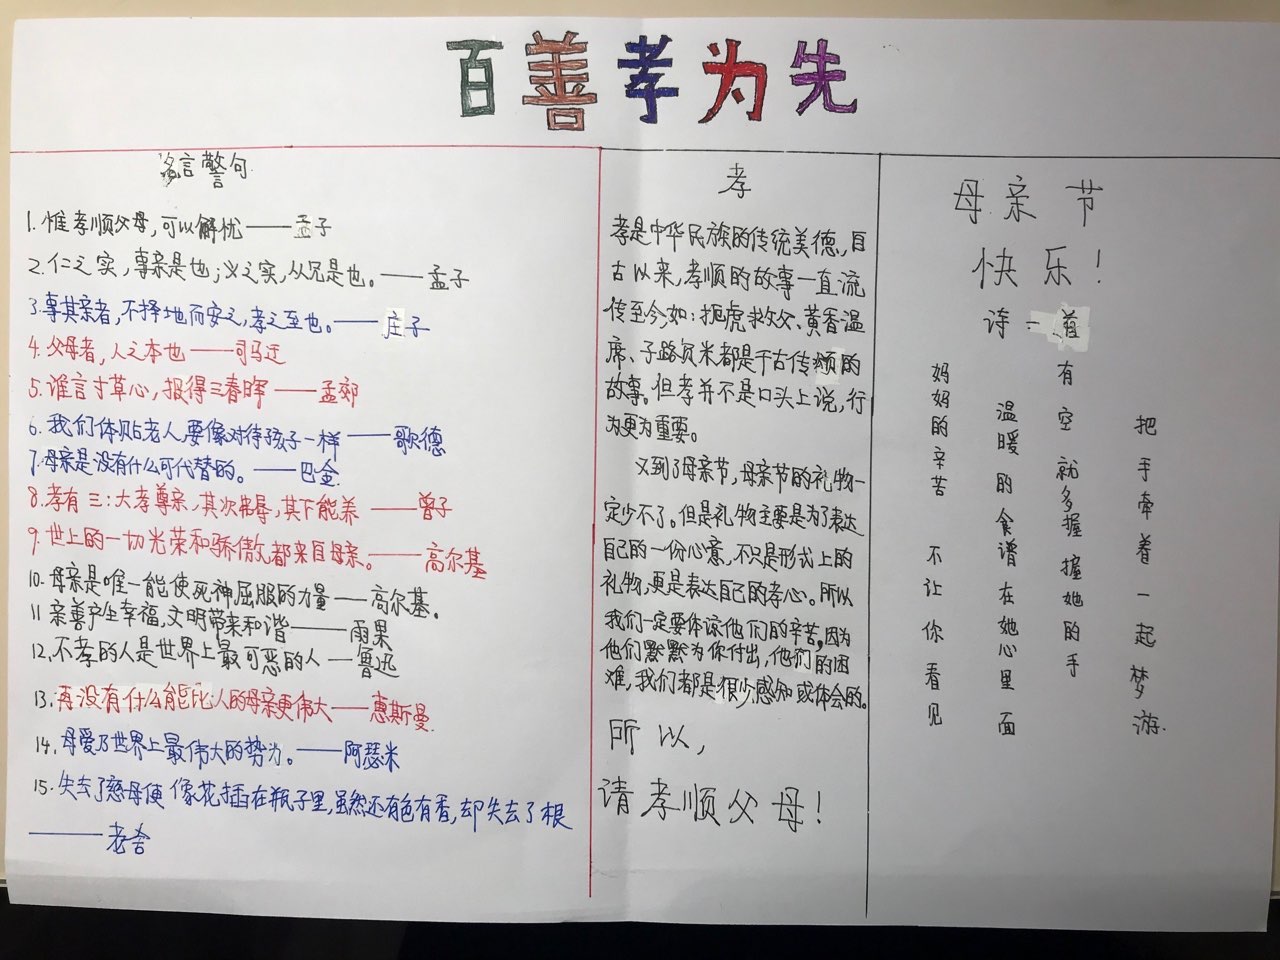 百善孝为先
名言警句
1. 惟孝顺父母，可以解忧——孟子
2. 仁之实，事亲是也；义之实，从兄是也。——孟子
3. 事其亲者，不择地而安之，孝之至也。——庄子
4. 父母者，人之本也——司马迁
5. 谁言寸草心，报得三春晖——孟郊
6. 我们体贴老人，要像对待孩子一样——歌德
7. 母亲是没有什么可代替的。——巴金
8. 孝有三：大孝尊亲，其次弗辱，其下能养——曾子
9. 世上的一切光荣和骄傲，都来自母亲。——高尔基
10. 母亲是唯一能使死神屈服的力量——高尔基。
11 亲善产生幸福，文明带来和谐——雨果
12. 不孝的人是世界上最可恶的人——鲁迅
13. 再没有什么能比人的母亲更伟大——惠斯曼
14. 母爱乃世界上最伟大的势为。——阿瑟米
15. 失去了慈母便像花插在瓶子里，虽然还有色有香，却失去了根
——老舍
孝
孝是中华民族的传统美德，自
古以来，孝顺的故事一直流
传至今如：扼虎救父、黄香温
席、子路负米都是千古传颂的
故事。但孝并不是口头上说，行
为更为重要。
又到了母亲节，母亲节的礼物一
定少不了。但是礼物主要是为了表达
自己的一份心意，不只是形式上的
礼物，更是表达自己的孝心。所以
我们一定要体谅他们的辛苦，因为
他们默默为你付出，他们的困
难，我们都是很少感知或体会的。
所以，
请孝顺父母！
母亲节
快乐！
诗二首
把手牵着一起梦游.
有空就多握握她的手
温暖的食谱在她心里面
妈妈的辛苦不让你看见